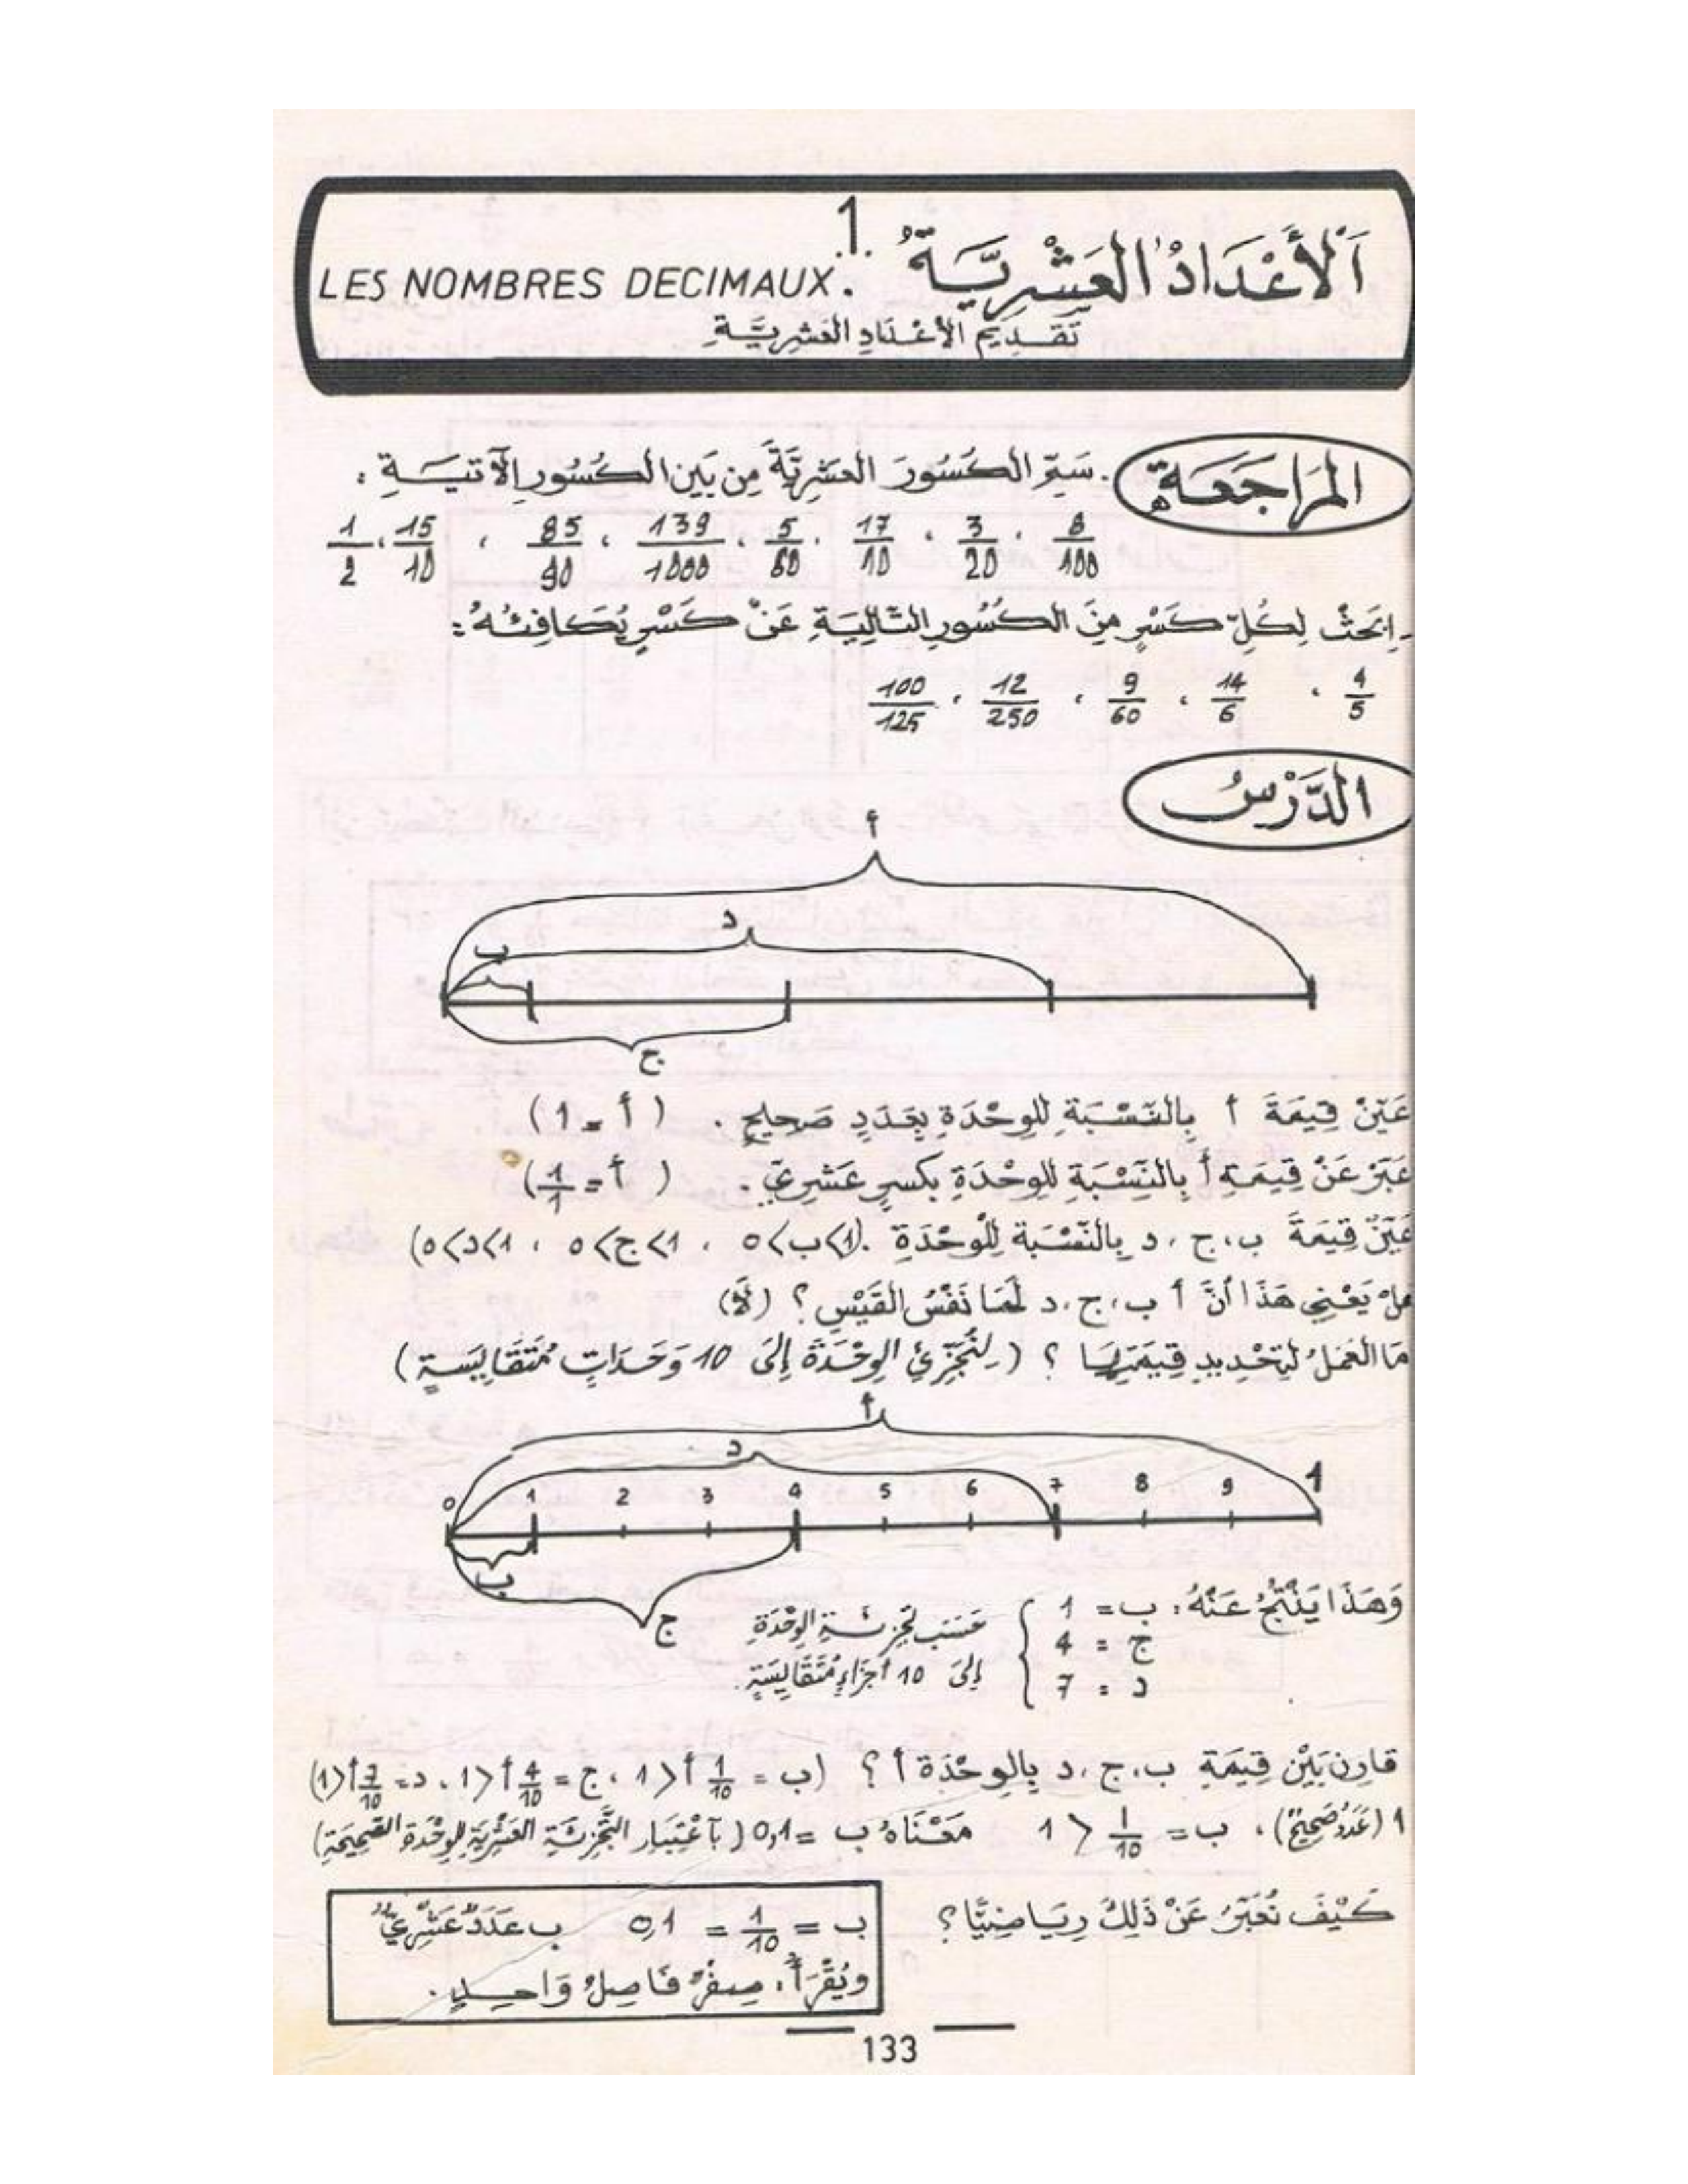 1.
اَلْأَعْدَادُ العَشْرِيَّةُ
LES NOMBRES DECIMAUX.
تَقْدِيمُ الأَعْدَادِ العَشْرِيَّةِ
المُرَاجَعَةُ
. سَمِّ الكُسُورَ العَشْرِيَّةَ مِن بَيْنِ الكُسُورِ الآتِيَةِ :
8/100 ، 3/20 ، 17/10 ، 5/60 ، 139/1000 ، 85/90 ، 15/10 ، 1/2
. اِبْحَثْ لِكُلِّ كَسْرٍ مِنَ الكُسُورِ التَّالِيَةِ عَنْ كَسْرٍ يُكَافِئُهُ :
4/5 ، 14/6 ، 9/60 ، 12/250 ، 100/125
الدَّرْسُ
أ
د
ب
ج
عَيِّنْ قِيمَةَ أ بِالنِّسْبَةِ لِلْوِحْدَةِ بِعَدَدٍ صَحِيحٍ . ( أ = 1 )
عَبِّرْ عَنْ قِيمَةِ أ بِالنِّسْبَةِ لِلْوِحْدَةِ بِكَسْرٍ عَشْرِيٍّ . ( أ = 1/1 )
عَيِّنْ قِيمَةَ ب، ج، د بِالنِّسْبَةِ لِلْوِحْدَةِ . (0<ب<1 ، 0<ج<1 ، 0<د<1)
هَلْ يَعْنِي هَذَا أَنَّ أ ب، ج، د لَهَا نَفْسُ القَيْسِ ؟ (لَا)
مَا العَمَلُ لِتَحْدِيدِ قِيمَتِهَا ؟ ( لِنُجَزِّئِ الوِحْدَةَ إِلَى 10 وَحَدَاتٍ مُتَقَايِسَةٍ )
أ
د
0 1 2 3 4 5 6 7 8 9 1
ب
ج
وَهَذَا يَنْتُجُ عَنْهُ : ب = 1
ج = 4
د = 7
حَسَب تَجْزِئَةِ الوِحْدَةِ
إِلَى 10 أَجْزَاءٍ مُتَقَايِسَةٍ .
قَارِن بَيْنَ قِيمَةِ ب، ج، د بِالوِحْدَةِ أ ؟ (ب = 1/10 أ < 1 ، ج = 4/10 أ < 1 ، د = 7/10 أ < 1)
1 (عَدَدٌ صَحِيحٌ) ، ب = 1/10 < 1 مَعْنَاهُ ب = 0,1 ( بِاعْتِبَارِ التَّجْزِئَةِ العَشْرِيَّةِ لِلْوِحْدَةِ الصَّحِيحَةِ)
كَيْفَ نُعَبِّرُ عَنْ ذَلِكَ رِيَاضِيًّا ؟
ب = 1/10 = 0,1 ب عَدَدٌ عَشْرِيٌّ
وَيُقْرَأُ : صِفْرٌ فَاصِلْ وَاحِدٍ .
133